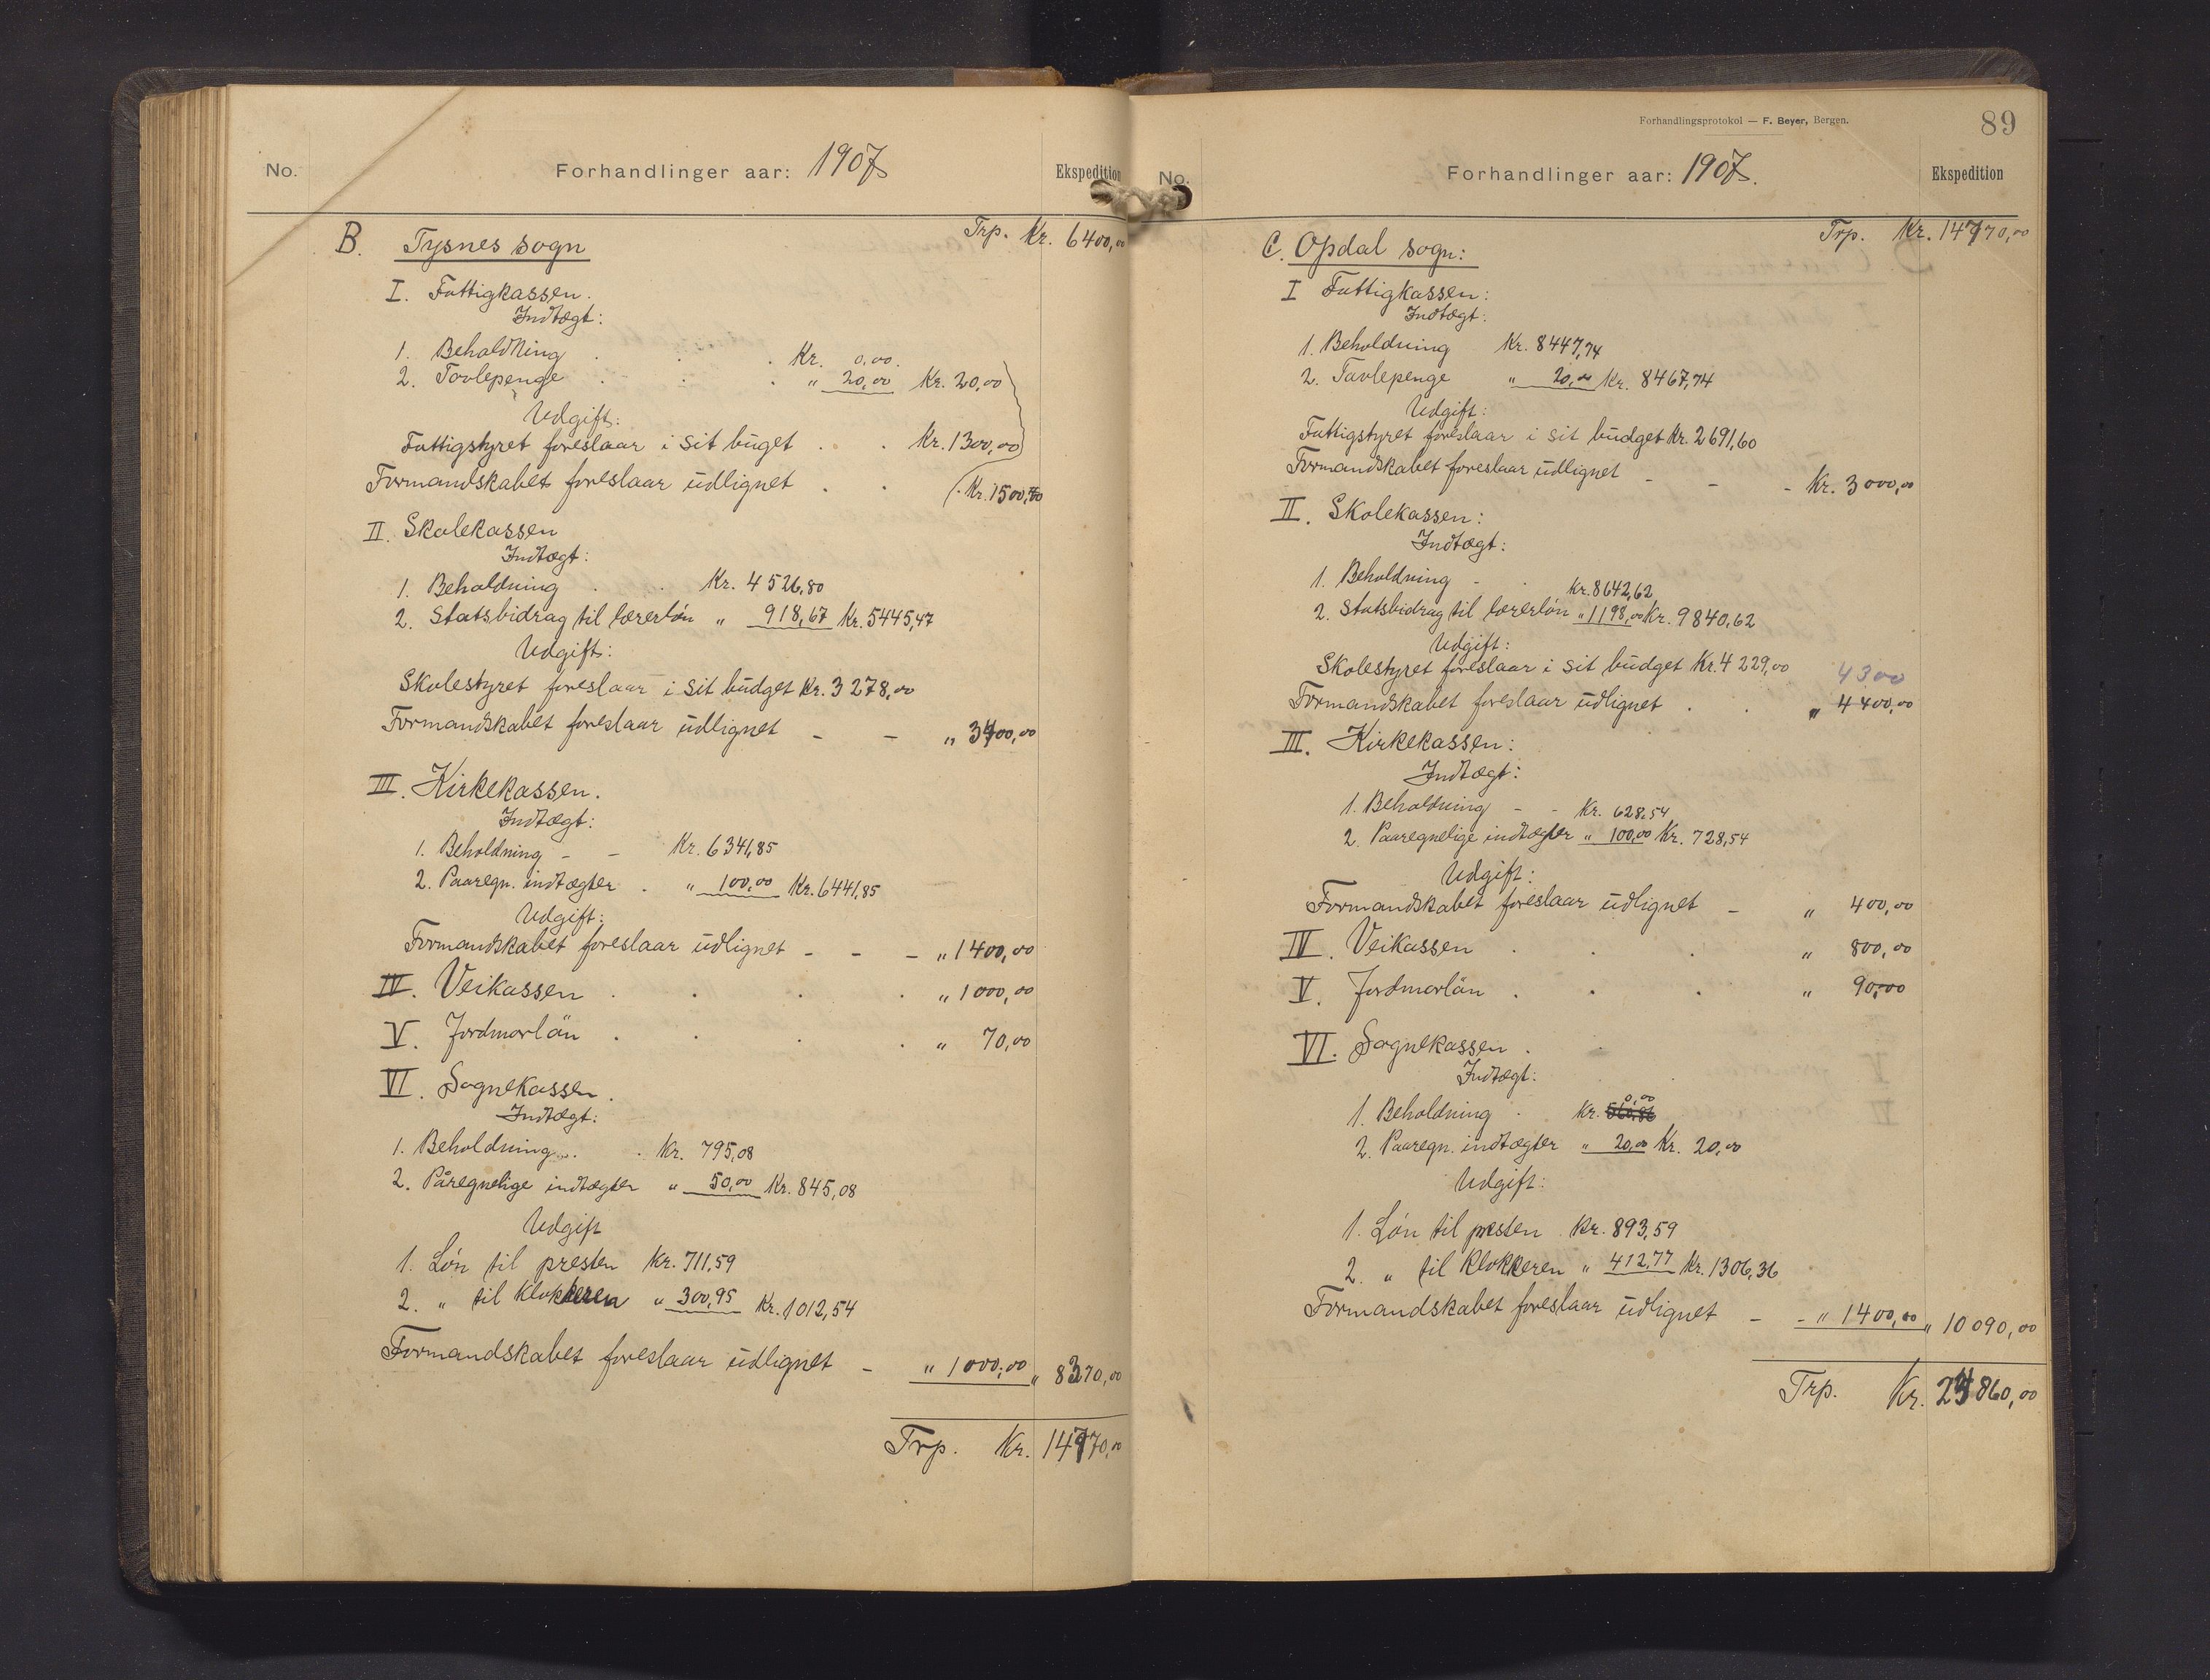 No. Forhandlinger aar: 1907 Ekspedition
Trp. Kr. 6400,00
B. Tysnes sogn
I. Fattigkassen.
Indtægt:
1. Beholdning . . . Kr. 0,00.
2. Tavlepenge . . . " 20,00 Kr. 20,00
Udgift:
Fattigstyret foreslaar i sit buget . . Kr. 1300,00
Formandskabet foreslaar udlignet . . Kr. 1500,00
II. Skolekassen
Indtægt:
1. Beholdning . . Kr. 4526,80
2. Statsbidrag til lærerløn " 918,67 Kr. 5445,47
Udgift:
Skolestyret foreslaar i sit budget Kr. 3278,00
Formandskabet foreslaar udlignet - - " 3400,00
III. Kirkekassen.
Indtægt:
1. Beholdning - - Kr. 6341,85
2. Paaregn. indtægter . " 100,00 Kr. 6441,85
Udgift:
Formandskabet foreslaar udlignet - - - " 1400,00
IV. Veikassen . . . . " 1000,00
V. Jordmorløn . . . " 70,00
VI. Sognekassen.
Indtægt:
1. Beholdning . . Kr. 795,08
2. Påregnelige indtægter " 50,00 Kr. 845,08
Udgift
1. Løn til presten Kr. 711,59
2. " til Klokkeren " 300,95 Kr. 1012,54
Formandskabet foreslaar udlignet - " 1000,00 " 8370,00
Trp. Kr. 14770,00
Forhandlingsprotokol — F. Beyer, Bergen.
89
No. Forhandlinger aar: 1907. Ekspedition
Trp. Kr. 14770,00
C. Opdal sogn:
I Fattigkassen:
Indtægt:
1. Beholdning Kr. 8447,74
2. Tavlepenge " 20,00 Kr. 8467,74
Udgift:
Fattigstyret foreslaar i sit budget Kr. 2691,60
Formandskabet foreslaar udlignet - - - Kr. 3000,00
II. Skolekassen:
Indtægt:
1. Beholdning - . Kr. 8642,62
2. Statsbidrag til lærerløn " 1198,00 Kr. 9840,62
Udgift:
Skolestyret foreslaar i sit budget Kr. 4229,00 4300
Formandskabet foreslaar udlignet . . " 4400,00
III. Kirkekassen:
Indtægt:
1. Beholdning - - Kr. 628,54
2. Paaregnelige indtægter " 100,00 Kr. 728,54
Udgift:
Formandskabet foreslaar udlignet - " 400,00
IV. Veikassen . . . " 800,00
V. Jordmorløn . . . " 90,00
VI. Sognekassen.
Indtægt:
0,00
1. Beholdning . Kr. 560,86
2. Paaregn. indtægter " 20,00 Kr. 20,00
Udgift:
1. Løn til presten Kr. 893,59
2. " til Klokkeren " 412,77 Kr. 1306,36
Formandskabet foreslaar udlignet - - " 1400,00 " 10090,00
Trp. Kr. 24860,00